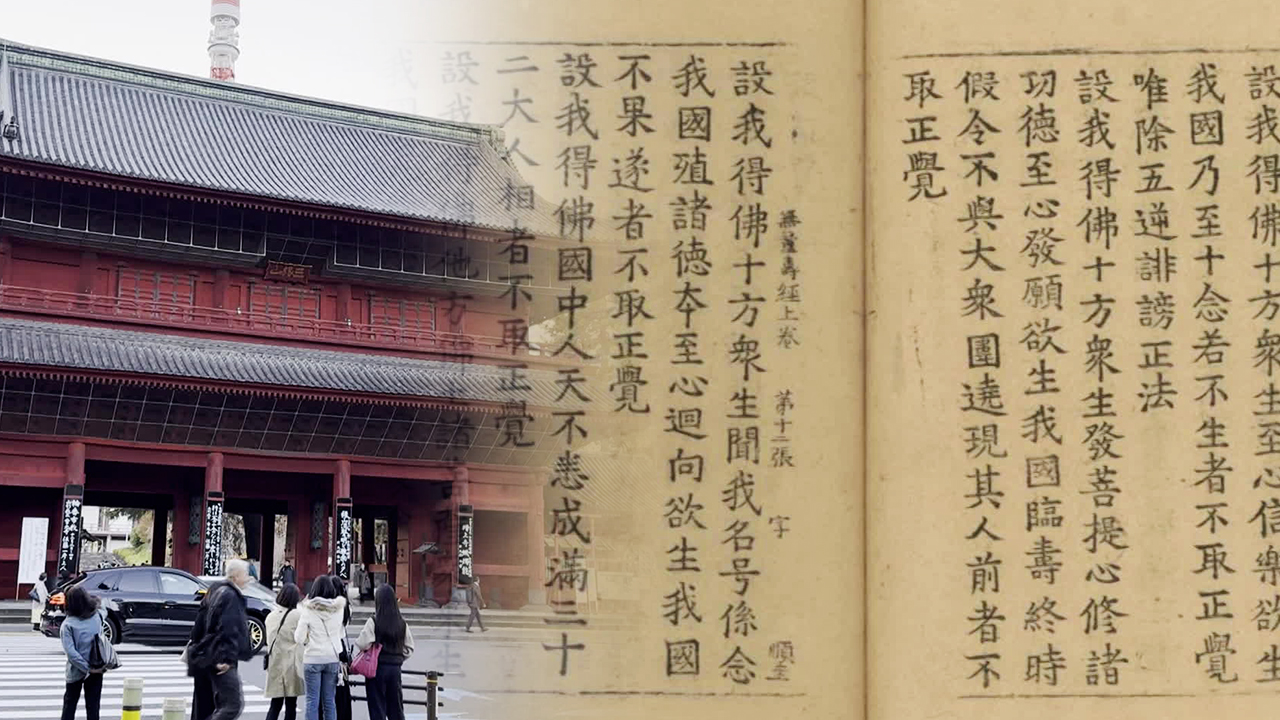 設我得佛十方衆生至心信樂欲生
我國乃至十念若不生者不取正覺
唯除五逆誹謗正法
設我得佛十方衆生發菩提心修諸
功德至心發願欲生我國臨壽終時
假令不與大衆圍遶現其人前者不
取正覺
無量壽經上卷 第十二張 字 順至
設我得佛十方衆生聞我名号係念
我國殖諸德夲至心迴向欲生我國
不果遂者不取正覺
設我得佛國中人天不悉成滿三十
二大人相者不取正覺
設我
他方
三縁山